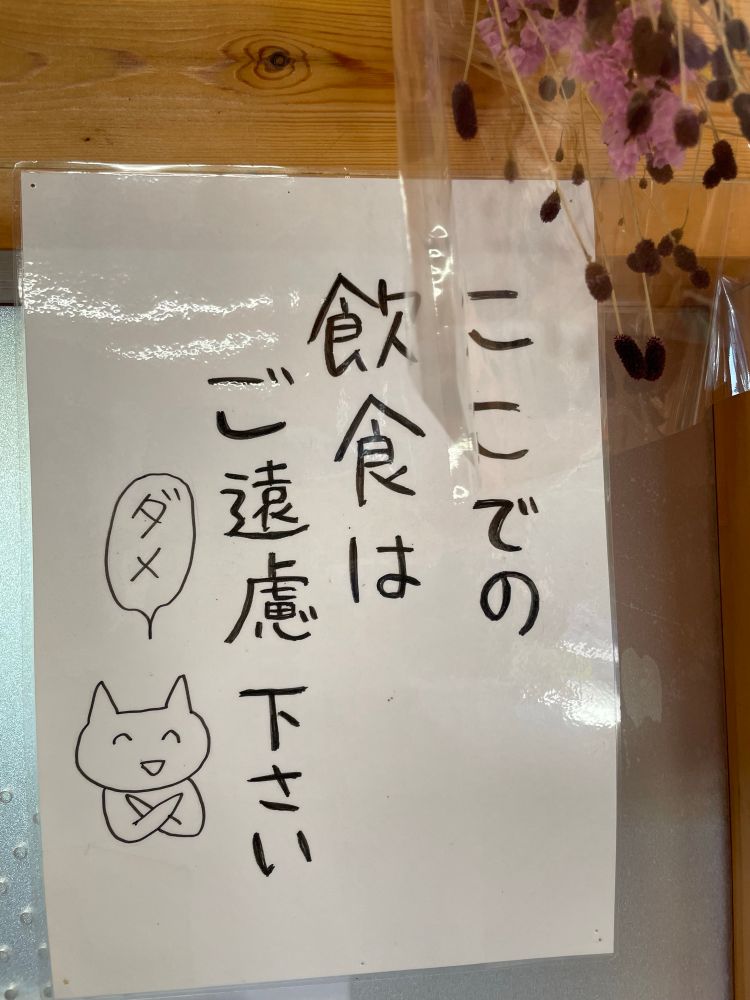 ここでの
飲食は
ご遠慮下さい
ダメ